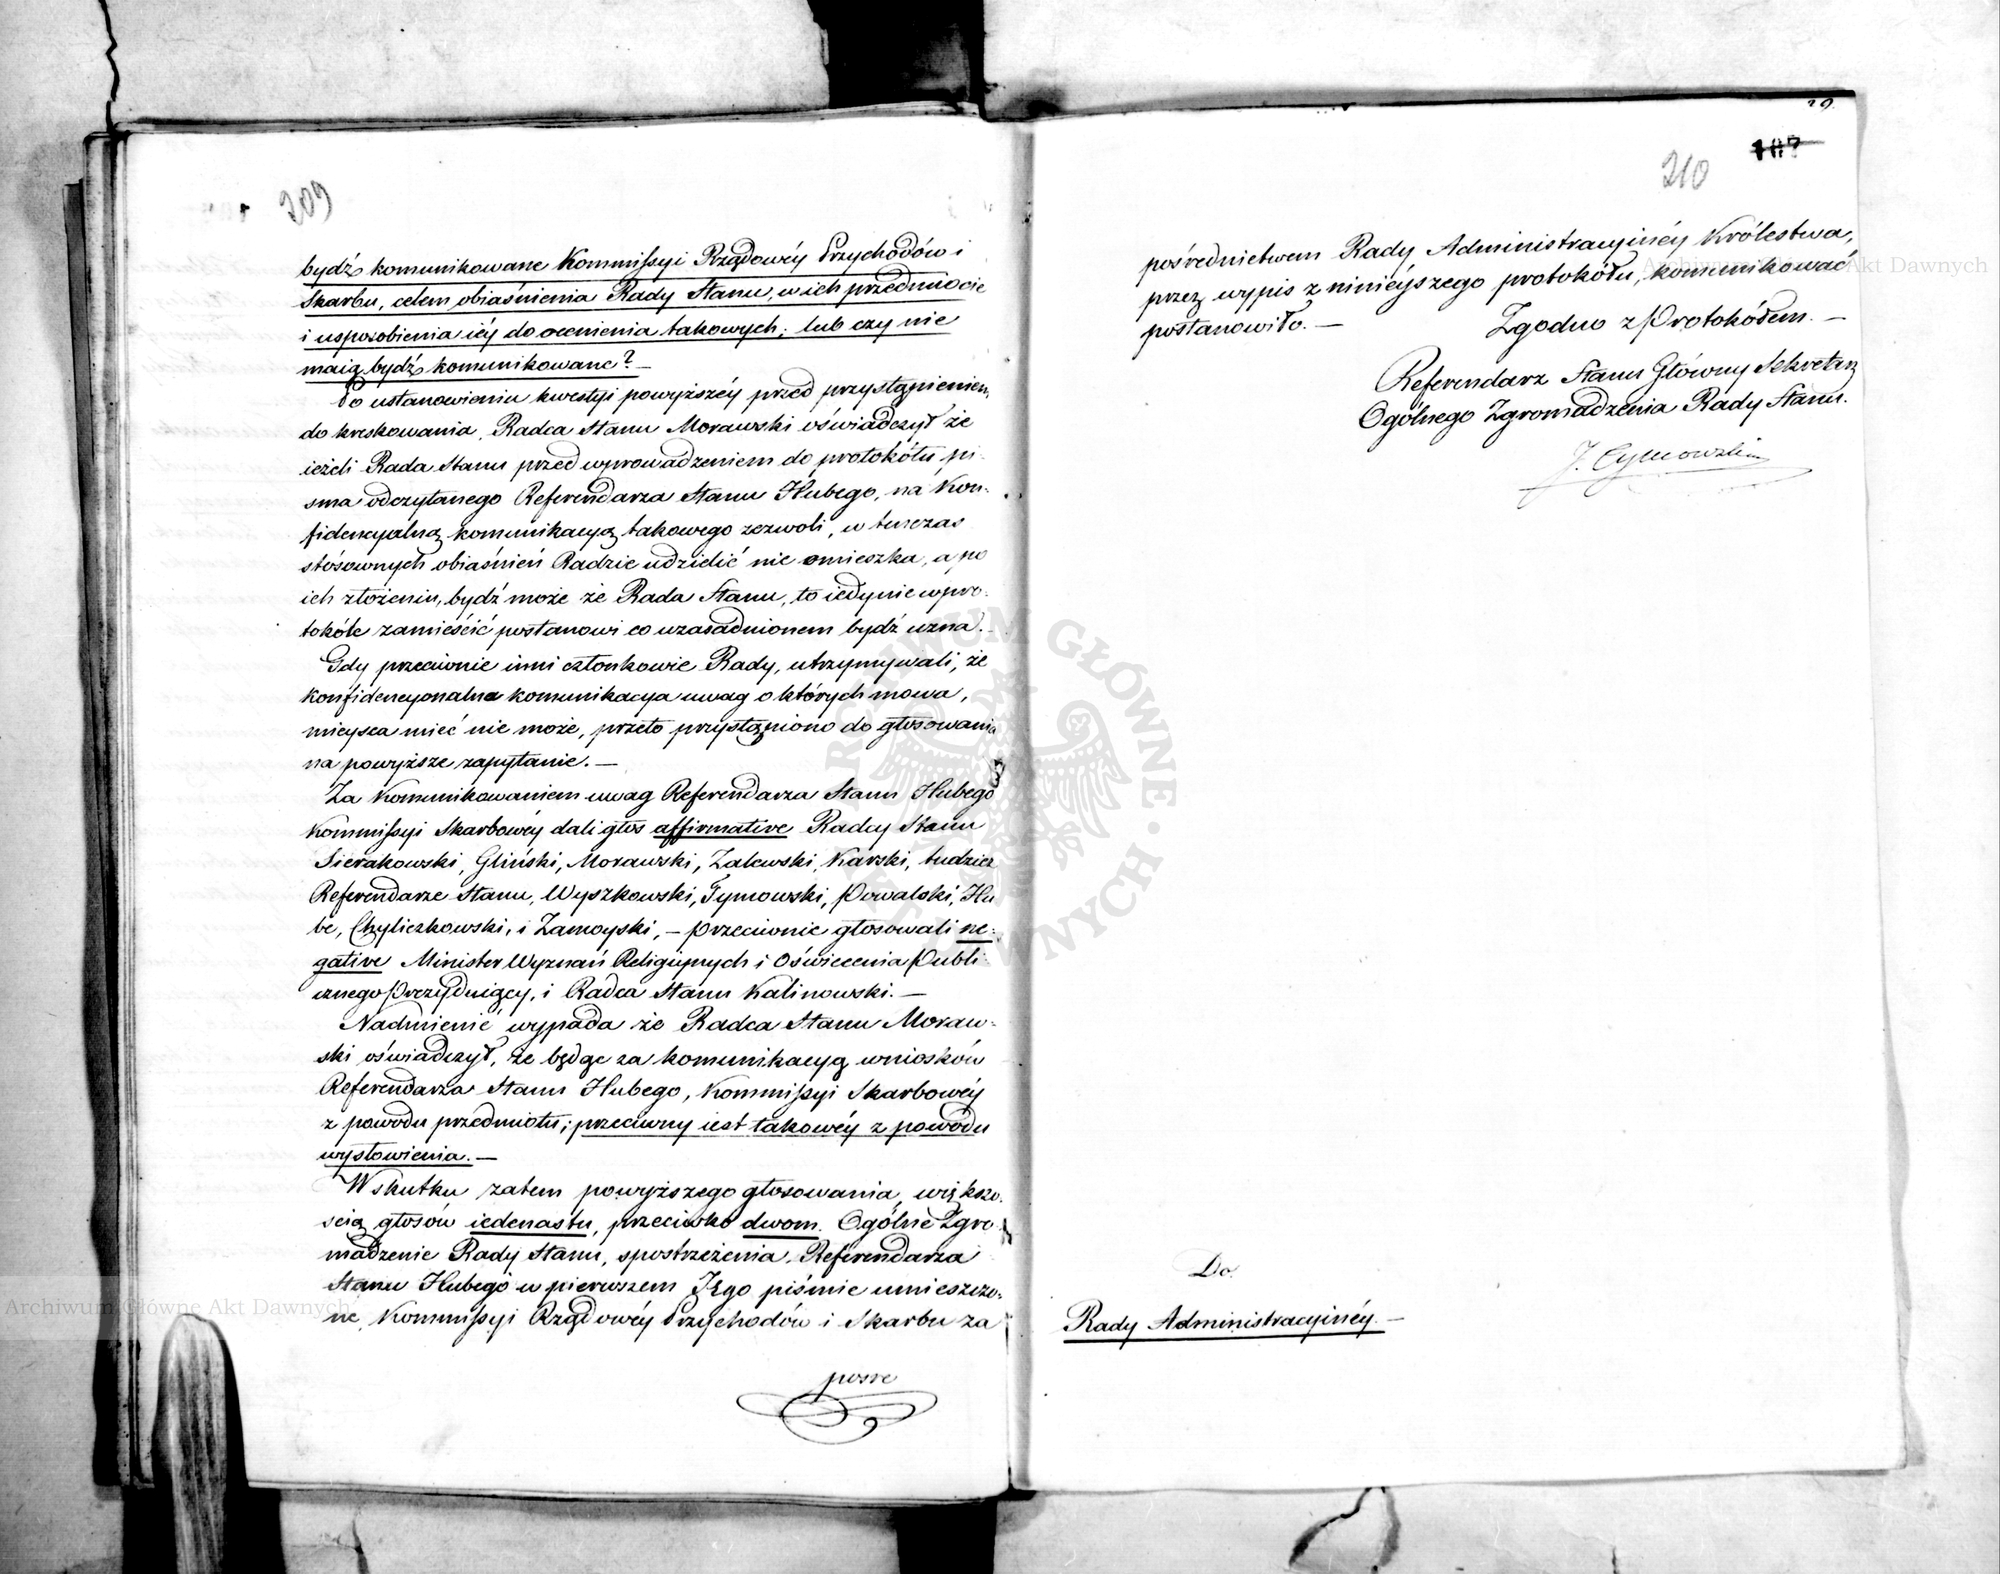 209
bydź komunikowane Kommissyi Rządowéy Przychodów i
Skarbu, celem obiaśnienia Rady Stanu, w ich przedmiocie
i usposobienia iéy do ocenienia takowych; lub czy nie
maią bydź komunikowane? —
Po ustanowieniu kwestyi powyższéy przed przystąpieniem
do kreskowania, Radca Stanu Morawski oświadczył że
ieżeli Rada Stanu przed wprowadzeniem do protokółu pi-
sma odczytanego Referendarza Stanu Hubego, na Kon-
fidencyalną komunikacyą takowego zezwoli, w tenczas
stósownych obiaśnień Radzie udzielić nie omieszka, a po
ich złożeniu, bydź może że Rada Stanu, to iedynie w pro-
tokóle zamieścić postanowi co uzasadnionem bydź uzna. —
Gdy przeciwnie inni członkowie Rady, utrzymywali, że
konfidencyonalna komunikacya uwag o których mowa,
mieysca mieć nie może, przeto przystąpiono do głosowania
na powyższe zapytanie. —
Za Komunikowaniem uwag Referendarza Stanu Hubego
Kommissyi Skarbowéy dali głos affirmative Radcy Stanu
Sierakowski, Gliński, Morawski, Zalewski, Karski, tudzież
Referendarze Stanu, Wyszkowski, Tymowski, Powalski, Hu
be, Chyliczkowski, i Zamoyski, — przeciwnie głosowali ne-
gative Minister Wyznań Religiynych i Oświecenia Publi-
cznego Prezyduiący, i Radca Stanu Kalinowski. —
Nadmienić wypada że Radca Stanu Moraw-
ski oświadczył, że będąc za komunikacyą wniosków
Referendarza Stanu Hubego, Kommissyi Skarbowéy
z powodu przedmiotu; przeciwny iest takowéy z powodu
wysłowienia. —
W skutku zatem powyższego głosowania, większo-
ścią głosów iedenastu, przeciwko dwom. Ogólne Zgro-
madzenie Rady Stanu, spostrzeżenia Referendarza
Stanu Hubego w pierwszem Jego piśmie umieszczo-
ne, Kommissyi Rządowéy Przychodów i Skarbu za
posre
29.
107
210
pośrednictwem Rady Administracyinéy Królestwa,
przez wypis z ninieyszego protokółu, komunikować
postanowiło. —
Zgodno z Protokółem. —
Referendarz Stanu Główny Sekretarz
Ogólnego Zgromadzenia Rady Stanu.
J. Tymowski
Do
Rady Administracyinéy. —
Archiwum Główne Akt Dawnych
Akt Dawnych
ARCHIWUM GŁÓWNE AKT DAWNYCH